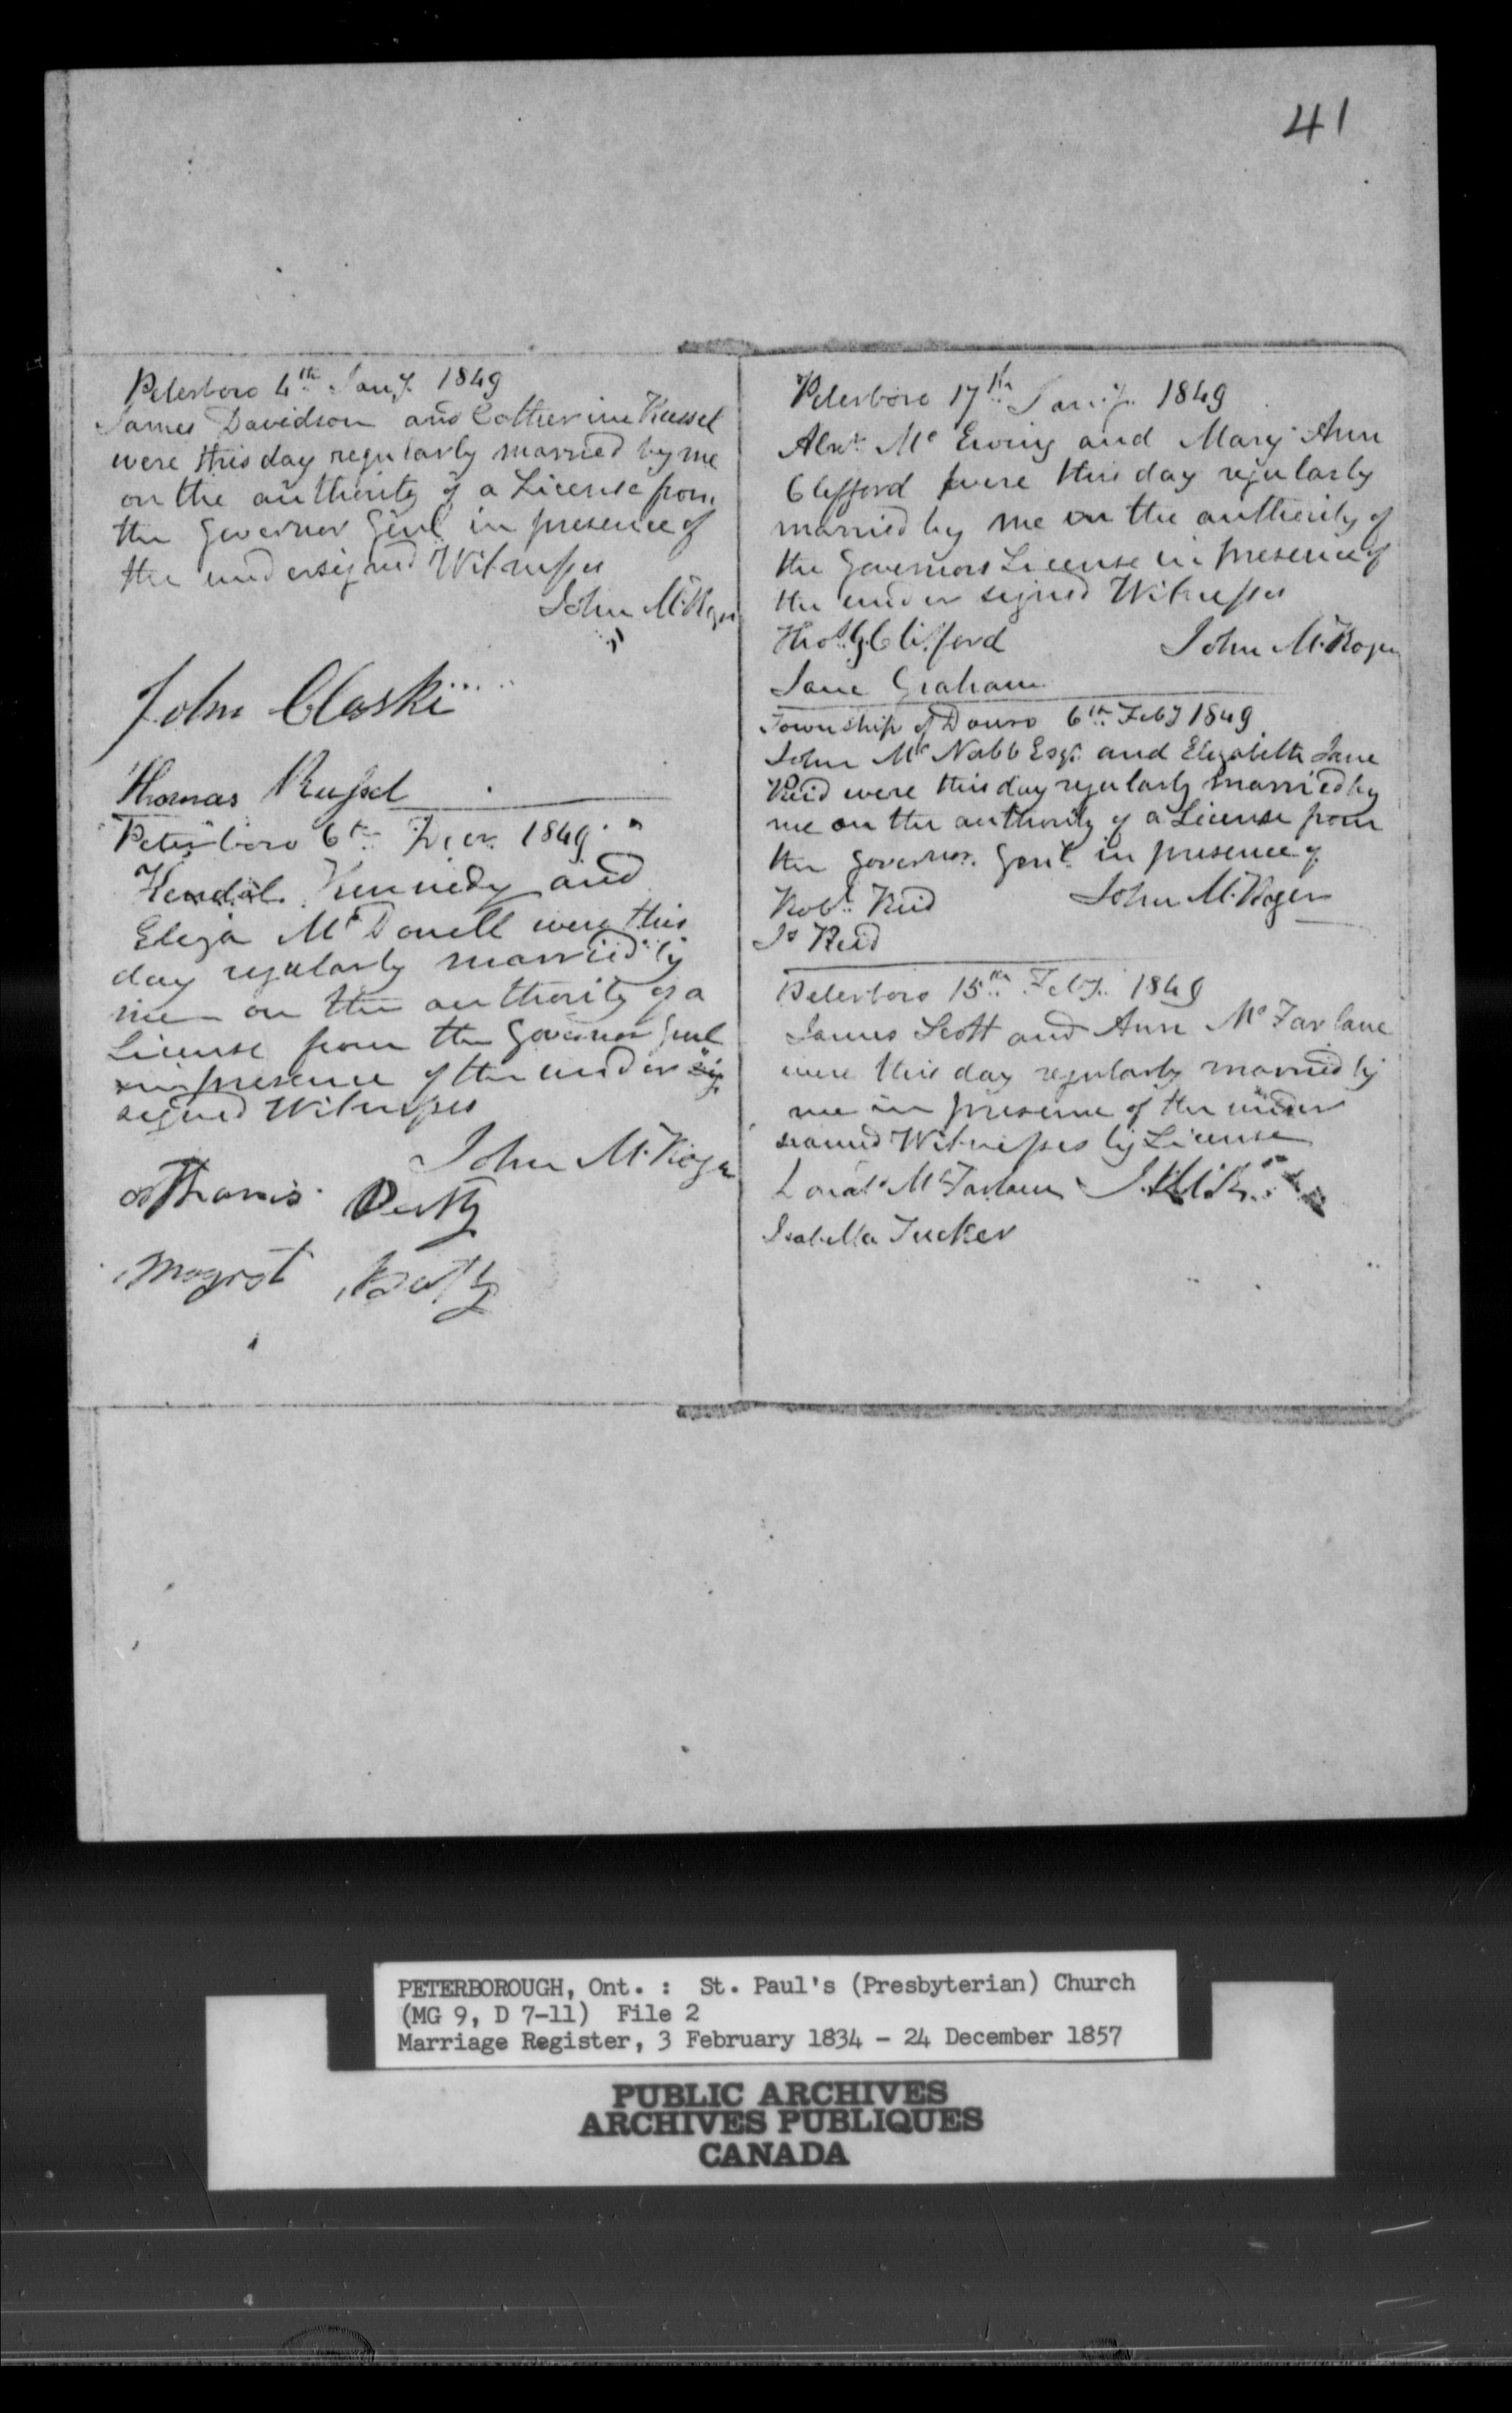 41
Peterboro 4th Jany. 1849
James Davidson and Catherine Russel
were this day regularly married by me
on the authority of a License from
the Governor Genl in presence of
the undersigned Witnesses
John M. Roger
John Claski
Thomas Russel
Peterboro 6th 1849
Kendal Kennedy and
Eliza McDonell were this
day regularly married by
me on the authority of a
License from the Governor Genl
in presence of the under
signed Witnesses
John M. Roger
Thomas
Peterboro 17th Jany. 1849
Alexr. Mc Ewing and Mary Ann
Clifford were this day regularly
married by me on the authority of
the Governors License in presence of
the under signed Witnesses
Thos. G. Clifford
John M. Roger
Jane Graham
Township of Douro 6th Feby 1849
John Mc Nabb Esqr. and Elizabeth Jane
Reid were this day regularly married by
me on the authority of a License from
the Governor. Genl. in presence of
Robt. Reid
John M. Roger
Js Reid
Peterboro 15th Feby. 1849
James Scott and Ann Mc Farlane
were this day regularly married by
me in presence of the under
signed Witnesses by License
Mc Farlane
Isabella Tucker
PETERBOROUGH, Ont. : St. Paul's (Presbyterian) Church
(MG 9, D 7-11) File 2
Marriage Register, 3 February 1834 - 24 December 1857
PUBLIC ARCHIVES
ARCHIVES PUBLIQUES
CANADA